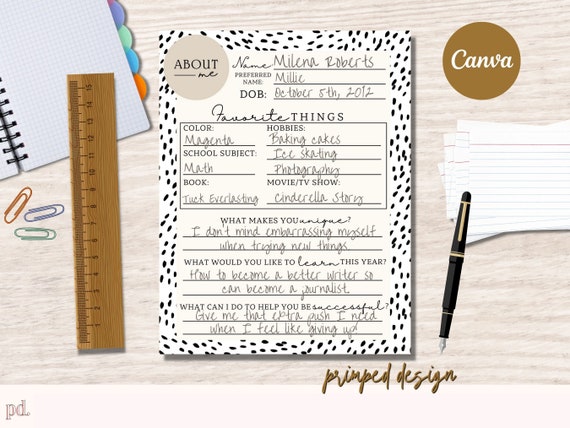 ABOUT
me
Name Milena Roberts
PREFERRED
NAME: Millie
DOB: October 5th, 2012
Favorite THINGS
COLOR:
Magenta
HOBBIES:
Baking cakes
SCHOOL SUBJECT:
Math
Ice skating
Photography
BOOK:
Tuck Everlasting
MOVIE/TV SHOW:
Cinderella Story
WHAT MAKES YOU unique?
I don't mind embarrassing myself
when trying new things.
WHAT WOULD YOU LIKE TO learn THIS YEAR?
How to become a better writer so I
can become a journalist.
WHAT CAN I DO TO HELP YOU BE successful?
Give me that extra push I need
when I feel like giving up!
Canva
15
14
13
12
11
10
9
8
7
6
5
4
3
2
1
primped design
pd.